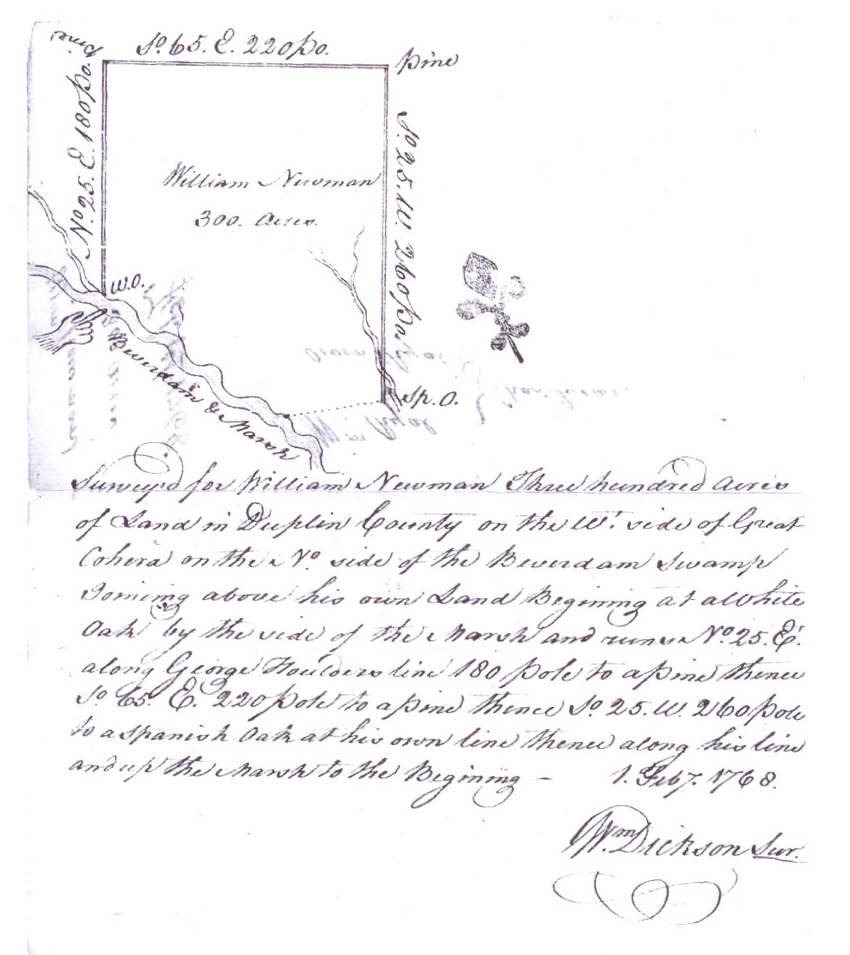 So. 65. E. 220 po.
pine
pine
No. 25. E. 180 po.
So. 25. W. 260 po.
William Newman
300. Acres.
W.O.
Beverdam & Marsh
Sp. O.
Wm Ryal
Survey'd for William Newman Three hundred Acres
of Land in Duplin County on the Wt. side of Great
Cohera on the No side of the Beverdam Swamp
Joining above his own Land Begining at a White
Oak by the side of the Marsh and runs No. 25. Et.
along George Houlders line 180 pole to a pine thence
So 65. E. 220 pole to a pine thence So. 25. W. 260 pole
to a Spanish Oak at his own line thence along his line
and up the Marsh to the Begining - 1. Feby. 1768.
Wm. Dickson Sur.